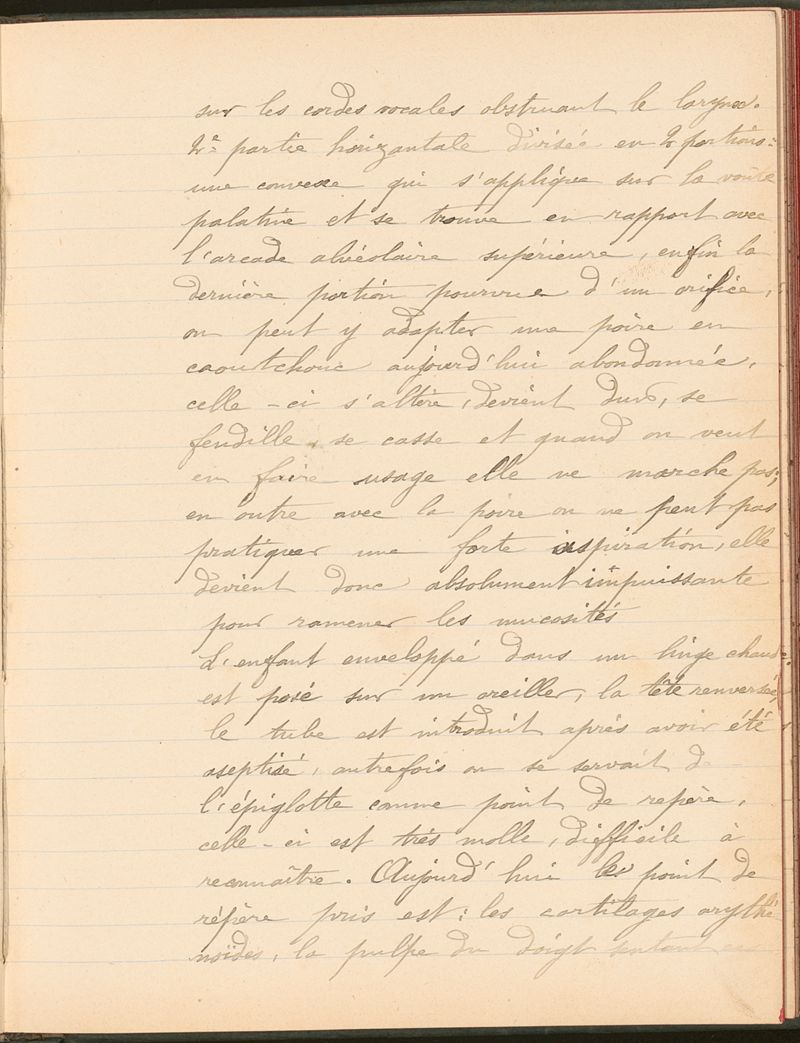 sur les cordes vocales obstruant le larynx.
2e partie horizontale divisée en 2 portions:
une convexe qui s'applique sur la voûte
palatine et se trouve en rapport avec
l'arcade alvéolaire supérieure, enfin la
dernière portion pourvue d'un orifice,
on peut y adapter une poire en
caoutchouc aujourd'hui abandonnée,
celle-ci s'altère, devient dur, se
fendille, se casse et quand on veut
en faire usage elle ne marche pas;
en outre avec la poire on ne peut pas
pratiquer une forte aspiration, elle
devient donc absolument impuissante
pour ramener les mucosités
L'enfant enveloppé dans un linge chaud
est posé sur un oreiller, la tête renversée,
le tube est introduit après avoir été
aseptisé, autrefois on se servait de
l'épiglotte comme point de repère,
celle-ci est très molle, difficile à
reconnaître. Aujourd'hui le point de
répère pris est: les cartilages arythé
noïdes, la pulpe du doigt